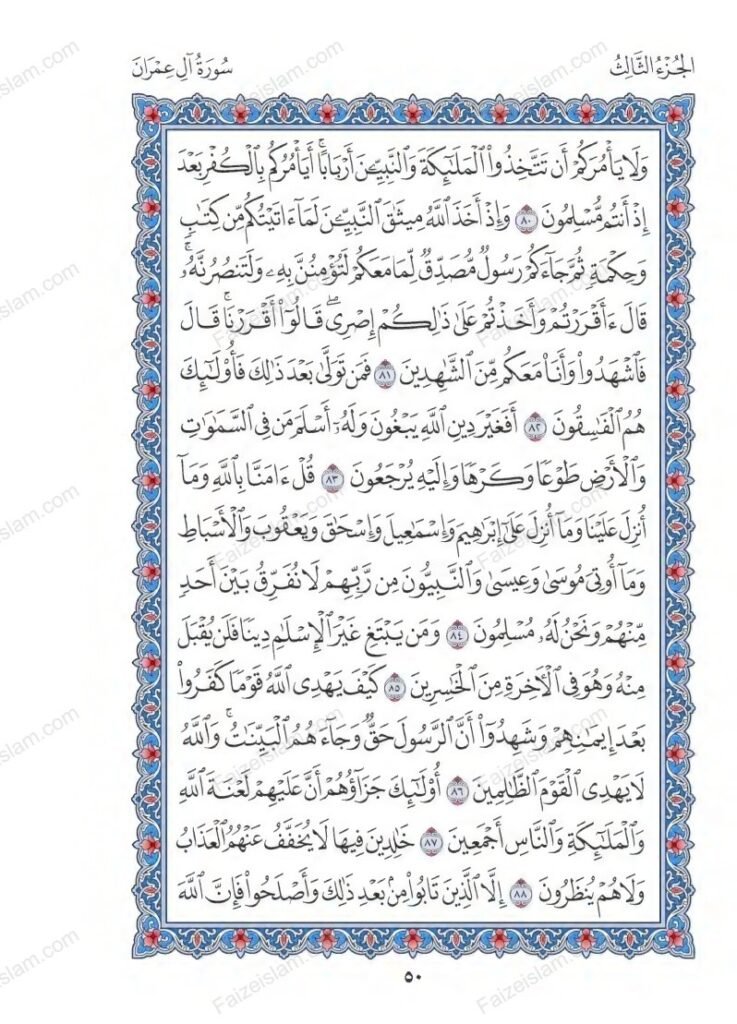 Faizeislam.com
Faizeislam.com
islam.com
الجُزْءُ الثَّالِثُ
سُورَةُ آلِ عِمْرَانَ
وَلَا يَأْمُرَكُمْ أَن تَتَّخِذُوا۟ ٱلْمَلَـٰٓئِكَةَ وَٱلنَّبِيِّـۧنَ أَرْبَابًا ۗ أَيَأْمُرُكُم بِٱلْكُفْرِ بَعْدَ
إِذْ أَنتُم مُّسْلِمُونَ ٨٠ وَإِذْ أَخَذَ ٱللَّهُ مِيثَـٰقَ ٱلنَّبِيِّـۧنَ لَمَآ ءَاتَيْتُكُم مِّن كِتَـٰبٍ
وَحِكْمَةٍ ثُمَّ جَآءَكُمْ رَسُولٌ مُّصَدِّقٌ لِّمَا مَعَكُمْ لَتُؤْمِنُنَّ بِهِۦ وَلَتَنصُرُنَّهُۥ ۚ
قَالَ ءَأَقْرَرْتُمْ وَأَخَذْتُمْ عَلَىٰ ذَٰلِكُمْ إِصْرِى ۖ قَالُوٓا۟ أَقْرَرْنَا ۚ قَالَ
فَٱشْهَدُوا۟ وَأَنَا۠ مَعَكُم مِّنَ ٱلشَّـٰهِدِينَ ٨١ فَمَن تَوَلَّىٰ بَعْدَ ذَٰلِكَ فَأُو۟لَـٰٓئِكَ
هُمُ ٱلْفَـٰسِقُونَ ٨٢ أَفَغَيْرَ دِينِ ٱللَّهِ يَبْغُونَ وَلَهُۥٓ أَسْلَمَ مَن فِى ٱلسَّمَـٰوَٰتِ
وَٱلْأَرْضِ طَوْعًا وَكَرْهًا وَإِلَيْهِ يُرْجَعُونَ ٨٣ قُلْ ءَامَنَّا بِٱللَّهِ وَمَآ
أُنزِلَ عَلَيْنَا وَمَآ أُنزِلَ عَلَىٰٓ إِبْرَٰهِيمَ وَإِسْمَـٰعِيلَ وَإِسْحَـٰقَ وَيَعْقُوبَ وَٱلْأَسْبَاطِ
وَمَآ أُوتِىَ مُوسَىٰ وَعِيسَىٰ وَٱلنَّبِيُّونَ مِن رَّبِّهِمْ لَا نُفَرِّقُ بَيْنَ أَحَدٍ
مِّنْهُمْ وَنَحْنُ لَهُۥ مُسْلِمُونَ ٨٤ وَمَن يَبْتَغِ غَيْرَ ٱلْإِسْلَـٰمِ دِينًا فَلَن يُقْبَلَ
مِنْهُ وَهُوَ فِى ٱلْـَٔاخِرَةِ مِنَ ٱلْخَـٰسِرِينَ ٨٥ كَيْفَ يَهْدِى ٱللَّهُ قَوْمًا كَفَرُوا۟
بَعْدَ إِيمَـٰنِهِمْ وَشَهِدُوٓا۟ أَنَّ ٱلرَّسُولَ حَقٌّ وَجَآءَهُمُ ٱلْبَيِّنَـٰتُ ۚ وَٱللَّهُ
لَا يَهْدِى ٱلْقَوْمَ ٱلظَّـٰلِمِينَ ٨٦ أُو۟لَـٰٓئِكَ جَزَآؤُهُمْ أَنَّ عَلَيْهِمْ لَعْنَةَ ٱللَّهِ
وَٱلْمَلَـٰٓئِكَةِ وَٱلنَّاسِ أَجْمَعِينَ ٨٧ خَـٰلِدِينَ فِيهَا لَا يُخَفَّفُ عَنْهُمُ ٱلْعَذَابُ
وَلَا هُمْ يُنظَرُونَ ٨٨ إِلَّا ٱلَّذِينَ تَابُوا۟ مِنۢ بَعْدِ ذَٰلِكَ وَأَصْلَحُوا۟ فَإِنَّ ٱللَّهَ
٥٠
islam.com
Faizeislam.com
Faizeislam.com